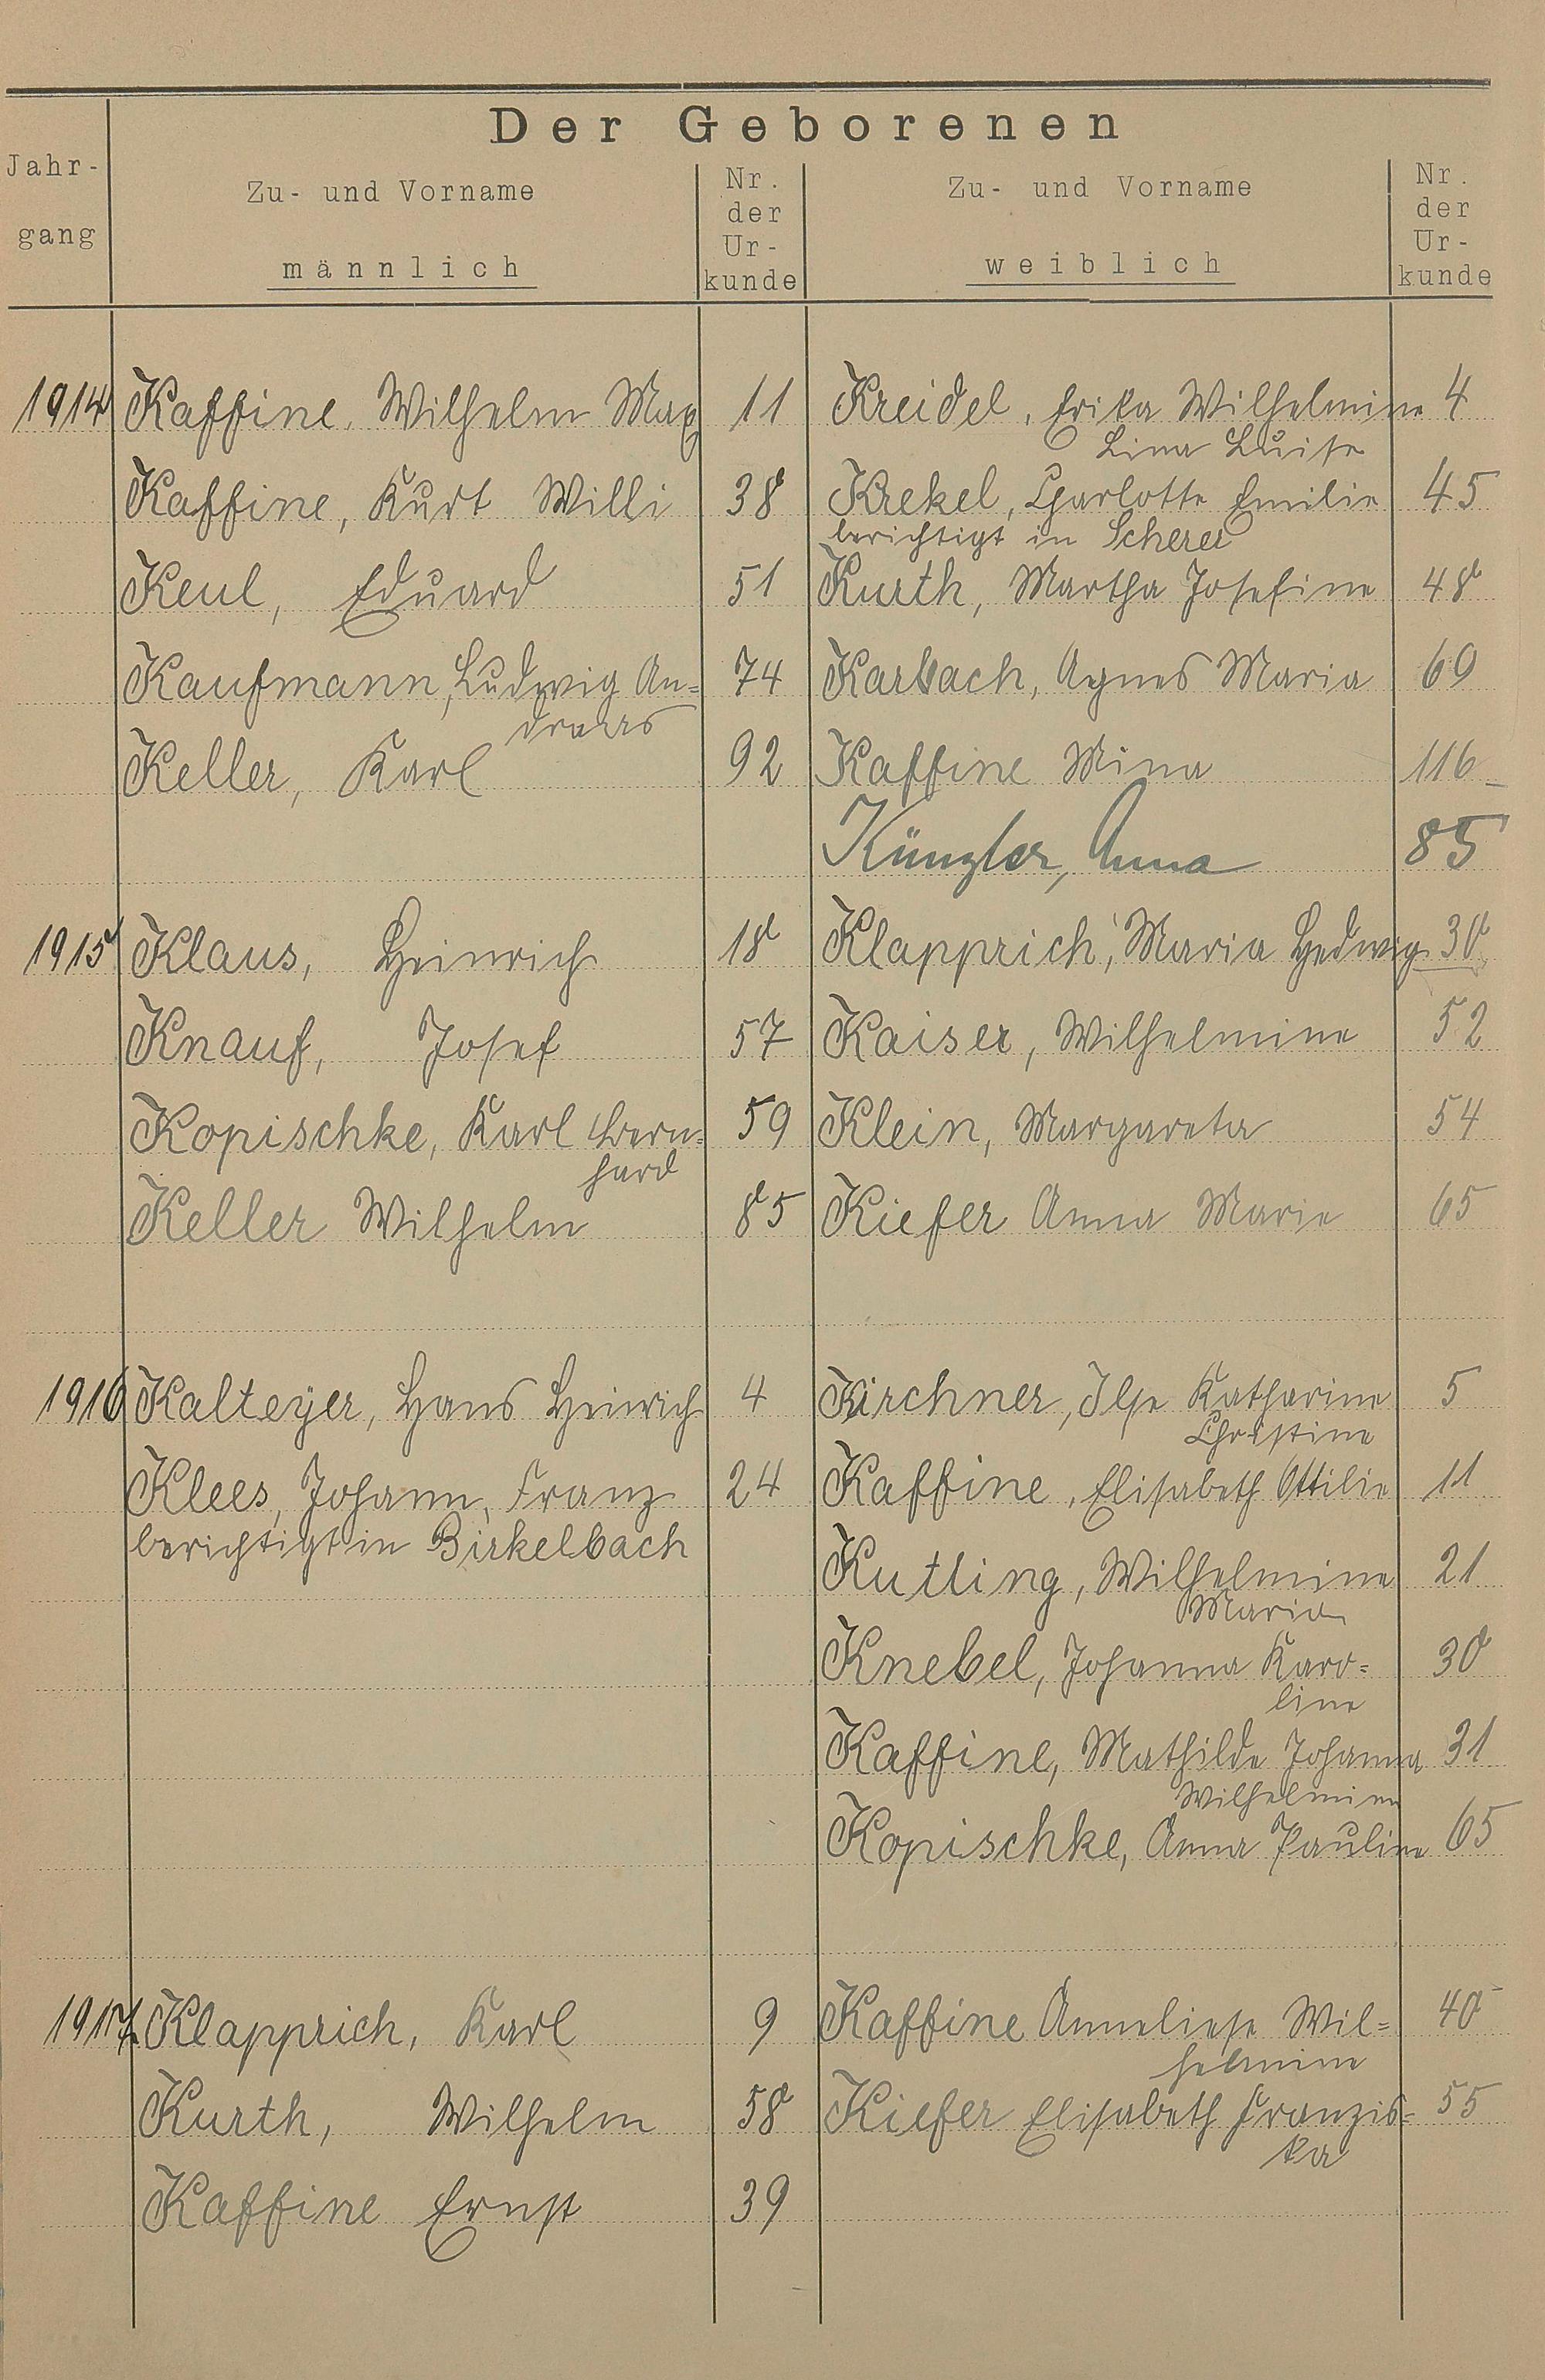 Der Geborenen
Jahr-
gang
Zu- und Vorname
männlich
Nr.
der
Ur-
kunde
Zu- und Vorname
weiblich
Nr.
der
Ur-
kunde
1914 Kaffine, Wilhelm Max 11 Kreidel, Erika Wilhelmine 4
Lina Luise
Kaffine, Kurt Willi 38 Krekel, Charlotte Emilie 45
berichtigt in Scherer
Keul, Eduard 51 Kurth, Martha Josefine 48
Kaufmann, Ludwig An= 74 Karbach, Agnes Maria 69
dreas
Keller, Karl 92 Kaffine Mina 116
Künzler, Anna 85
1915 Klaus, Heinrich 18 Klapprich, Maria Hedwig 30
Knauf, Josef 57 Kaiser, Wilhelmine 52
Kopischke, Karl Bern= 59 Klein, Margareta 54
hard
Keller Wilhelm 85 Kiefer Anna Marie 65
1916 Kalteyer, Hans Heinrich 4 Kirchner, Ilse Katharine 5
Christine
Klees, Johann, Franz 24 Kaffine, Elisabeth Ottilie 11
berichtigt in Birkelbach
Kutting, Wilhelmine 21
Maria
Knebel, Johanna Karo= 30
line
Kaffine, Mathilde Johanna 31
Wilhelmine
Kopischke, Anna Pauline 65
1917 Klapprich, Karl 9 Kaffine Anneliese Wil= 40
helmine
Kurth, Wilhelm 58 Kiefer Elisabeth Franzis= 55
ka
Kaffine Ernst 39